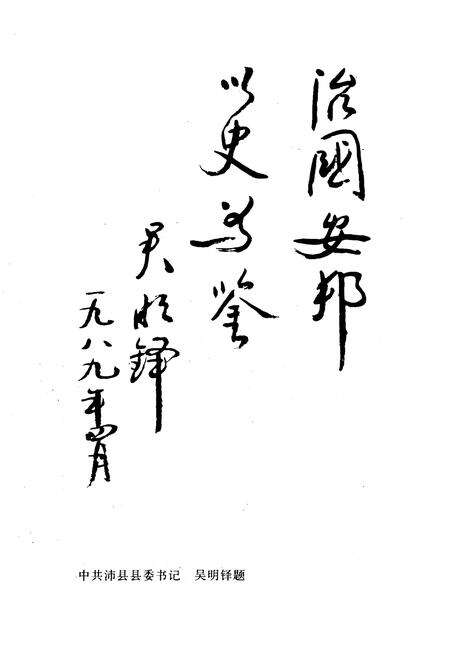 治國安邦
以史为鉴
吴明铎
一九八九年四月
中共沛县县委书记 吴明铎题